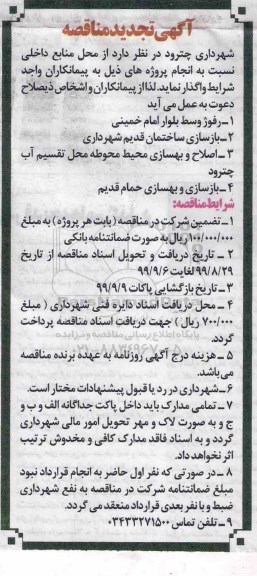 آگهی تجدید مناقصه
شهرداری چترود در نظر دارد از محل منابع داخلی
نسبت به انجام پروژه های ذیل به پیمانکاران واجد
شرایط واگذار نماید. لذا از پیمانکاران و اشخاص ذیصلاح
دعوت به عمل می آید
۱ـ رفوژ وسط بلوار امام خمینی
۲ـ بازسازی ساختمان قدیم شهرداری
۳ ـ اصلاح و بهسازی محیط محوطه محل تقسیم آب
چترود
۴ـ بازسازی و بهسازی حمام قدیم
شرایط مناقصه:
۱ ـ تضمین شرکت در مناقصه (بابت هر پروژه) به مبلغ
۱۰۰/۰۰۰/۰۰۰ ریال به صورت ضمانتنامه بانکی
۲ ـ تاریخ دریافت و تحویل اسناد مناقصه از تاریخ
۹۹/۸/۲۹ لغایت ۹۹/۹/۶
۳ـ تاریخ بازگشایی پاکات ۹۹/۹/۹
۴ ـ محل دریافت اسناد دایره فنی شهرداری ( مبلغ
۷۰۰/۰۰۰ ریال ) جهت دریافت اسناد مناقصه پرداخت
گردد.
۵ ـ هزینه درج آگهی روزنامه به عهده برنده مناقصه
می باشد.
۶ ـ شهرداری در رد یا قبول پیشنهادات مختار است.
۷ ـ تمامی مدارک باید داخل پاکت جداگانه الف و ب و
ج و به صورت لاک و مهر تحویل امور مالی شهرداری
گردد و به اسناد فاقد مدارک کافی و مخدوش ترتیب
اثر نخواهد داد.
۸ ـ در صورتی که نفر اول حاضر به انجام قرارداد نبود
مبلغ ضمانتنامه شرکت در مناقصه به نفع شهرداری
ضبط و با نفر بعدی قرارداد منعقد می گردد.
۹ ـ تلفن تماس ۰۳۴۳۳۲۷۱۵۰۰